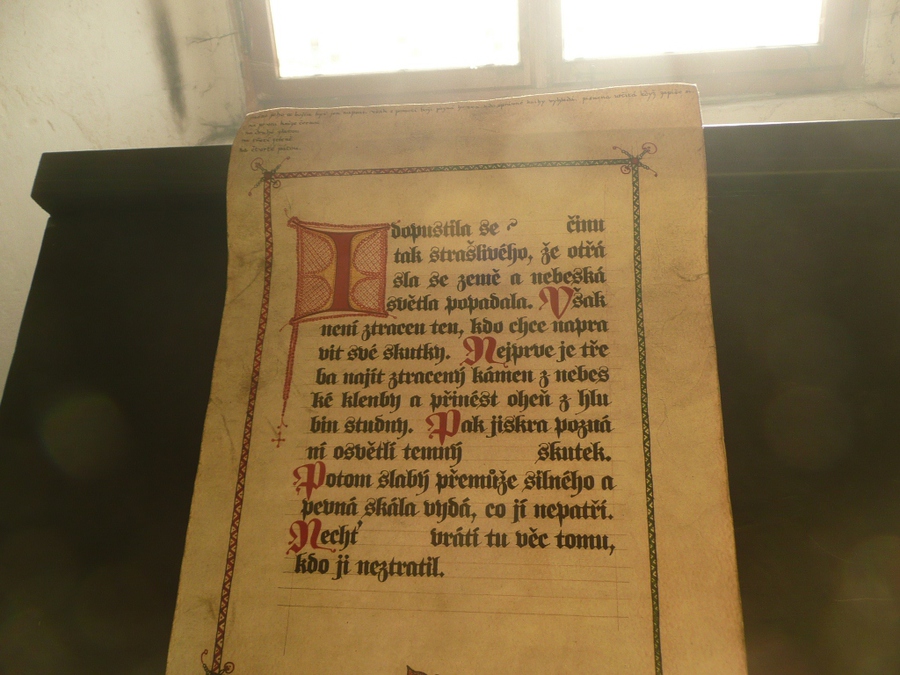 Idopustila se činu
tak strašlivého, že otřá
sla se země a nebeská
světla popadala. Však
není ztracen ten, kdo chce napra
vit své skutky. Nejprve je tře
ba najít ztracený kámen z nebes
ké klenby a přinést oheň z hlu
bin studny. Pak jiskra pozná
ní osvětlí temný skutek.
Potom slabý přemůže silného a
pevná skála vydá, co jí nepatří.
Nechť vrátí tu věc tomu,
kdo ji neztratil.